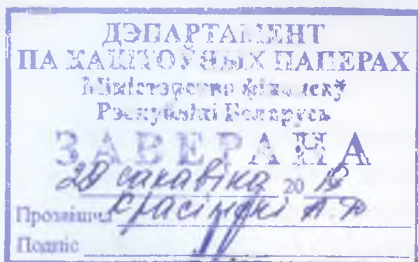 ДЭПАРТАМЕНТ
ПА КАШТОЎНЫХ ПАПЕРАХ
Міністэрства фінансаў
Рэспублікі Беларусь
ЗАВЕРАНА
28 сакавіка 20
Прозвішча
Подпіс